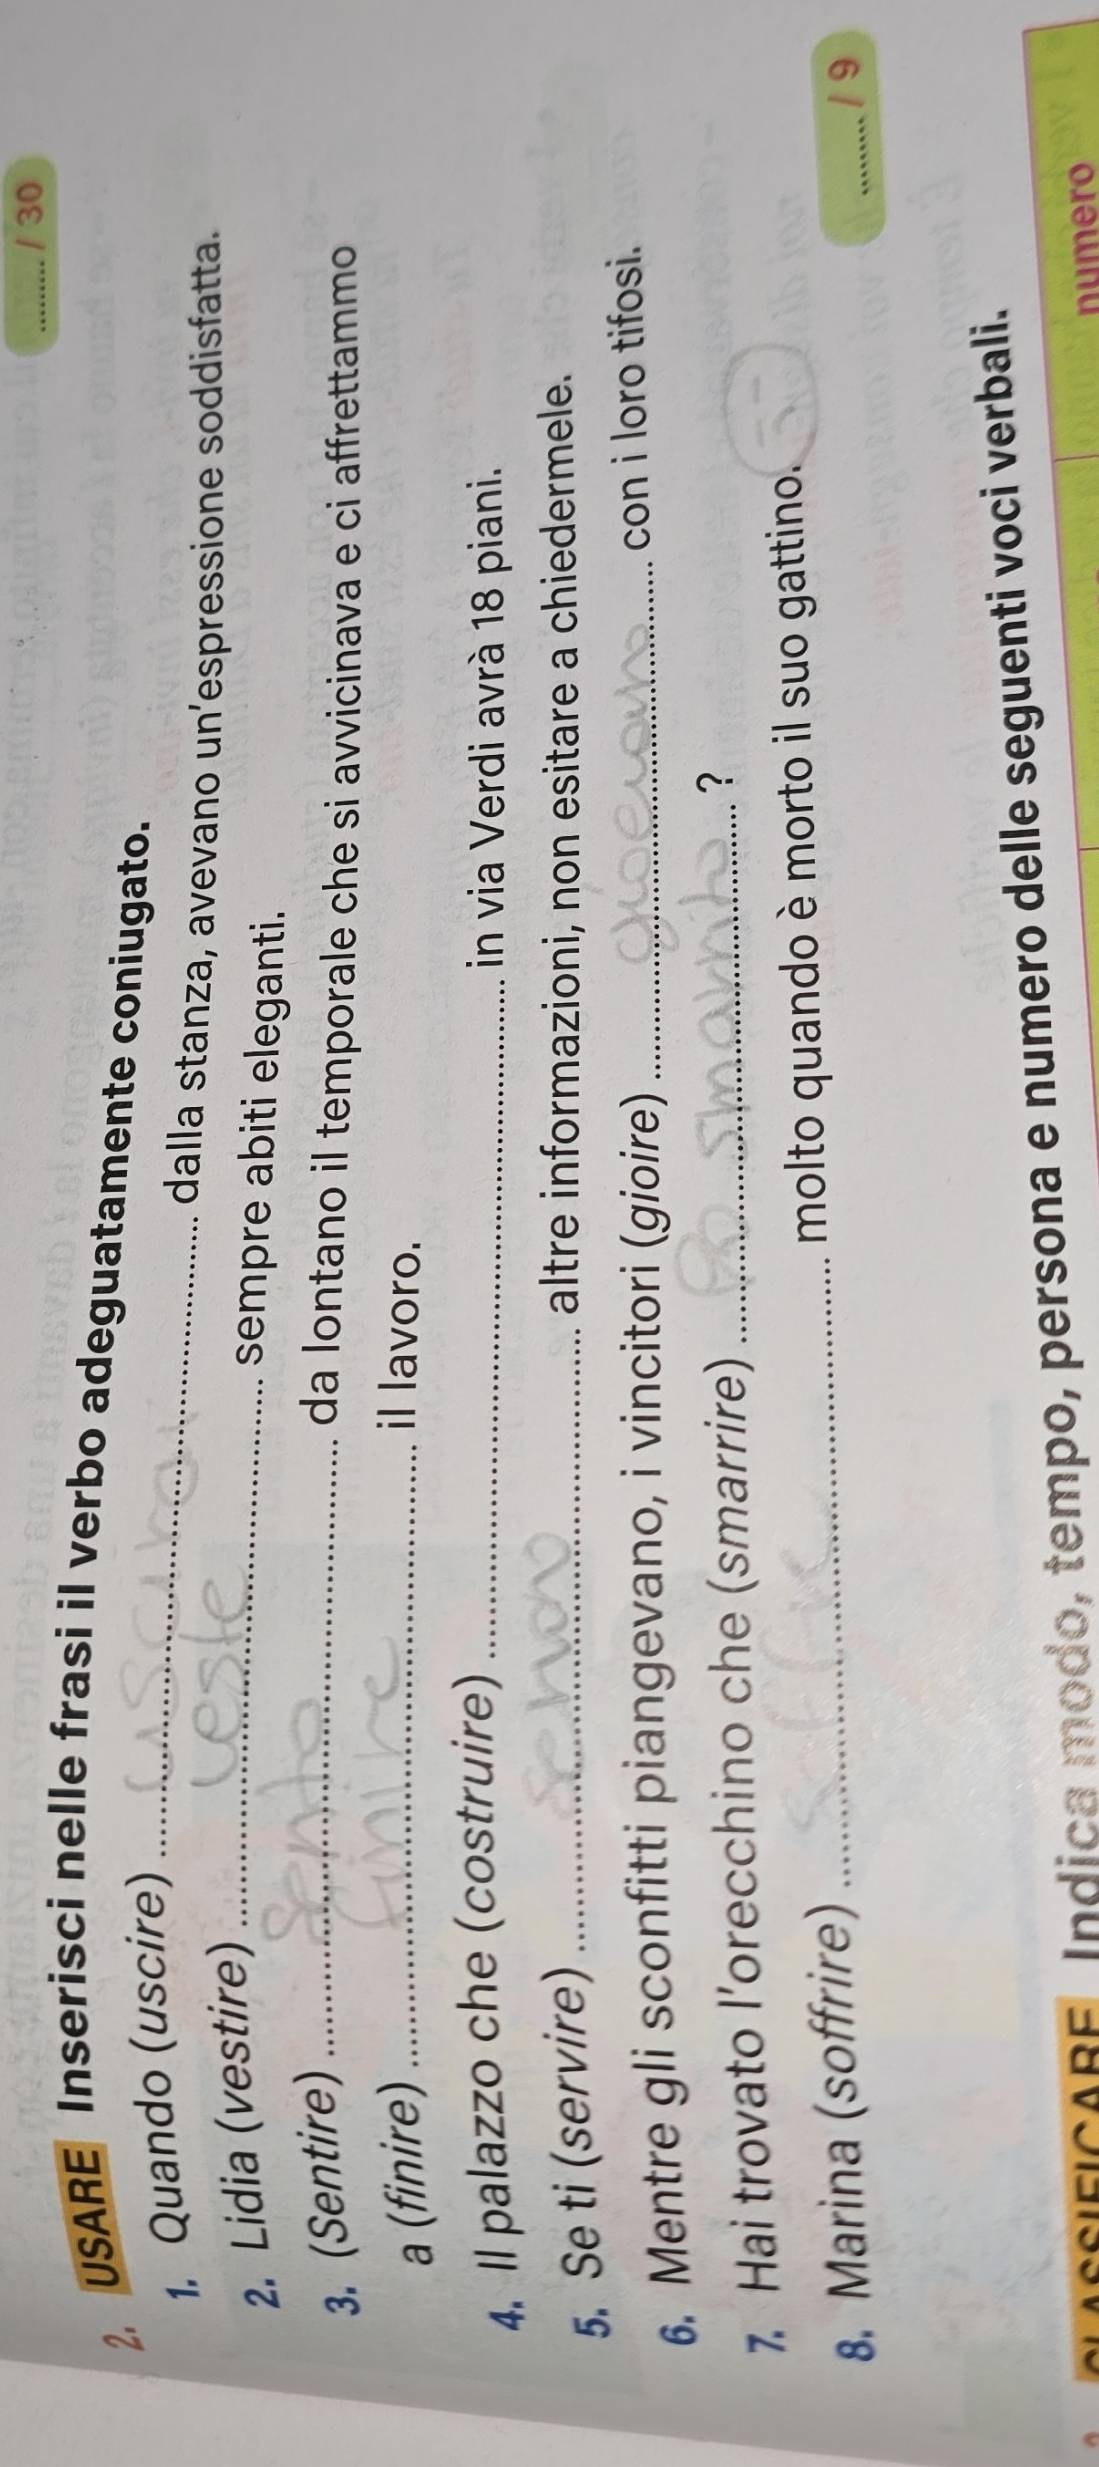 ......... / 30
2. USARE Inserisci nelle frasi il verbo adeguatamente coniugato.
1. Quando (uscire) ........ dalla stanza, avevano un'espressione soddisfatta.
2. Lidia (vestire) veste ........ sempre abiti eleganti.
3. (Sentire) sento ........ da lontano il temporale che si avvicinava e ci affrettammo
a (finire) finire ........ il lavoro.
4. Il palazzo che (costruire) ........ in via Verdi avrà 18 piani.
5. Se ti (servire) servono ........ altre informazioni, non esitare a chiedermele.
6. Mentre gli sconfitti piangevano, i vincitori (gioire) ........ con i loro tifosi.
7. Hai trovato l'orecchino che (smarrire) ........ ?
8. Marina (soffrire) ........ molto quando è morto il suo gattino.
......... / 9
Indica modo, tempo, persona e numero delle seguenti voci verbali.
numero